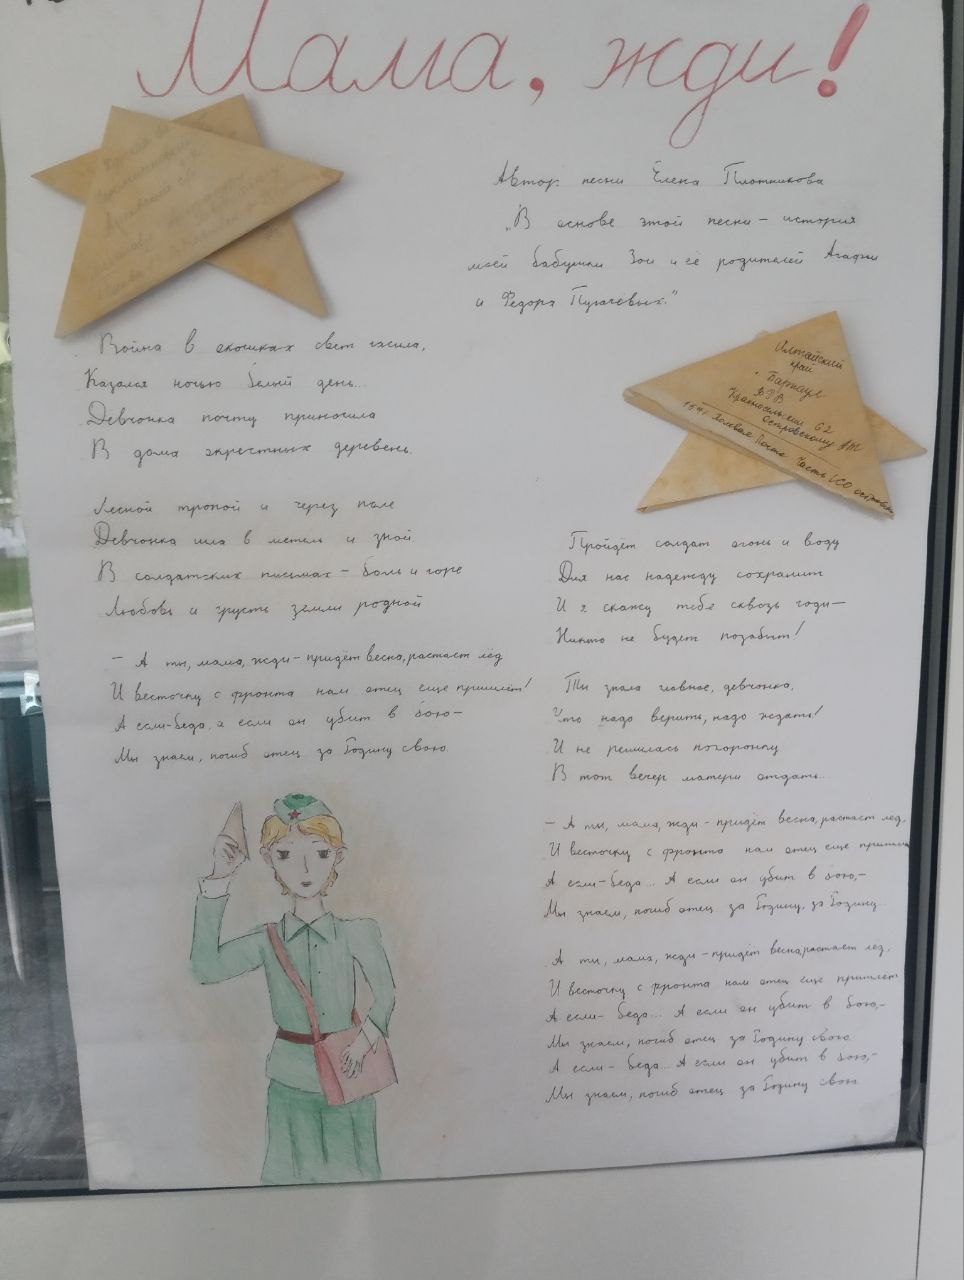 Мама, жди!
Автор песни Елена Плотникова
„В основе этой песни – история
моей бабушки Зои и её родителей Агафьи
и Федора Пугачёвых."
Война в окошках свет гасила,
Казался ночью белый день...
Девчонка почту приносила
В дома окрестных деревень.
Лесной тропой и через поле
Девчонка шла в метель и зной
В солдатских письмах – боль и горе
Любовь и грусть земли родной
– А ты, мама, жди – придёт весна, растает лёд
И весточку с фронта нам отец еще пришлёт!
А если – беда, а если он убит в бою –
Мы знаем, погиб отец за Родину свою.
Алтайский
край
г Барнаул
ВРВ
Красносельский 62
Островскому
Полевая Почта Часть
Пройдёт солдат огонь и воду
Для нас надежду сохранит
И я скажу тебе сквозь годы –
Никто не будет позабыт!
Ты знала главное, девчонка,
Что надо верить, надо ждать!
И не решилась похоронку
В тот вечер матери отдать...
– А ты, мама, жди – придёт весна, растает лед,
И весточку с фронта нам отец еще
А если – беда... А если он убит в бою, –
Мы знаем, погиб отец за Родину, за Родину...
А ты, мама, жди – придёт весна, растает лед,
И весточку с фронта нам отец еще пришлет
А если – беда... А если он убит в бою, –
Мы знаем, погиб отец за Родину свою
А если – беда... А если он убит в бою, –
Мы знаем, погиб отец за Родину свою